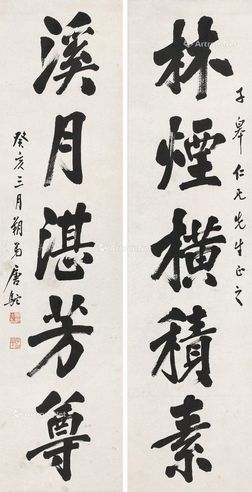 林煙橫積素
子皋仁兄先生正之
溪月湛芳尊
癸亥三月朔弟唐駝